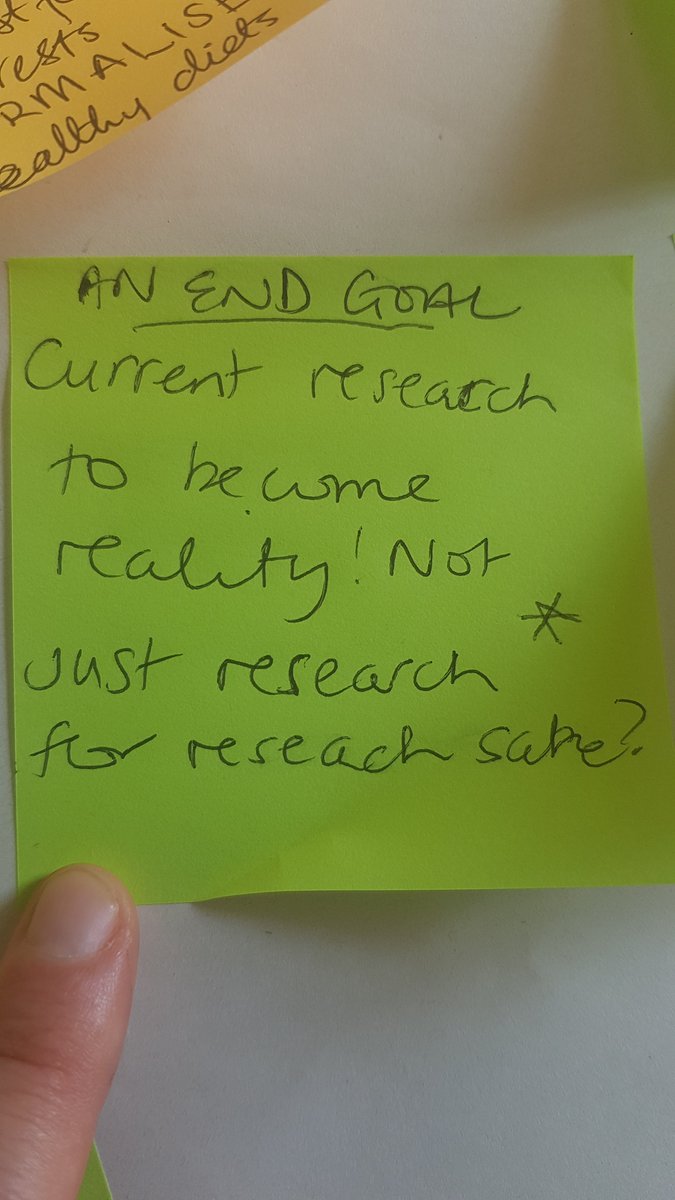 rests
RMALISE
ealthy diets
AN END GOAL
Current research
to become
reality! Not
Just research *
for reseach sake?